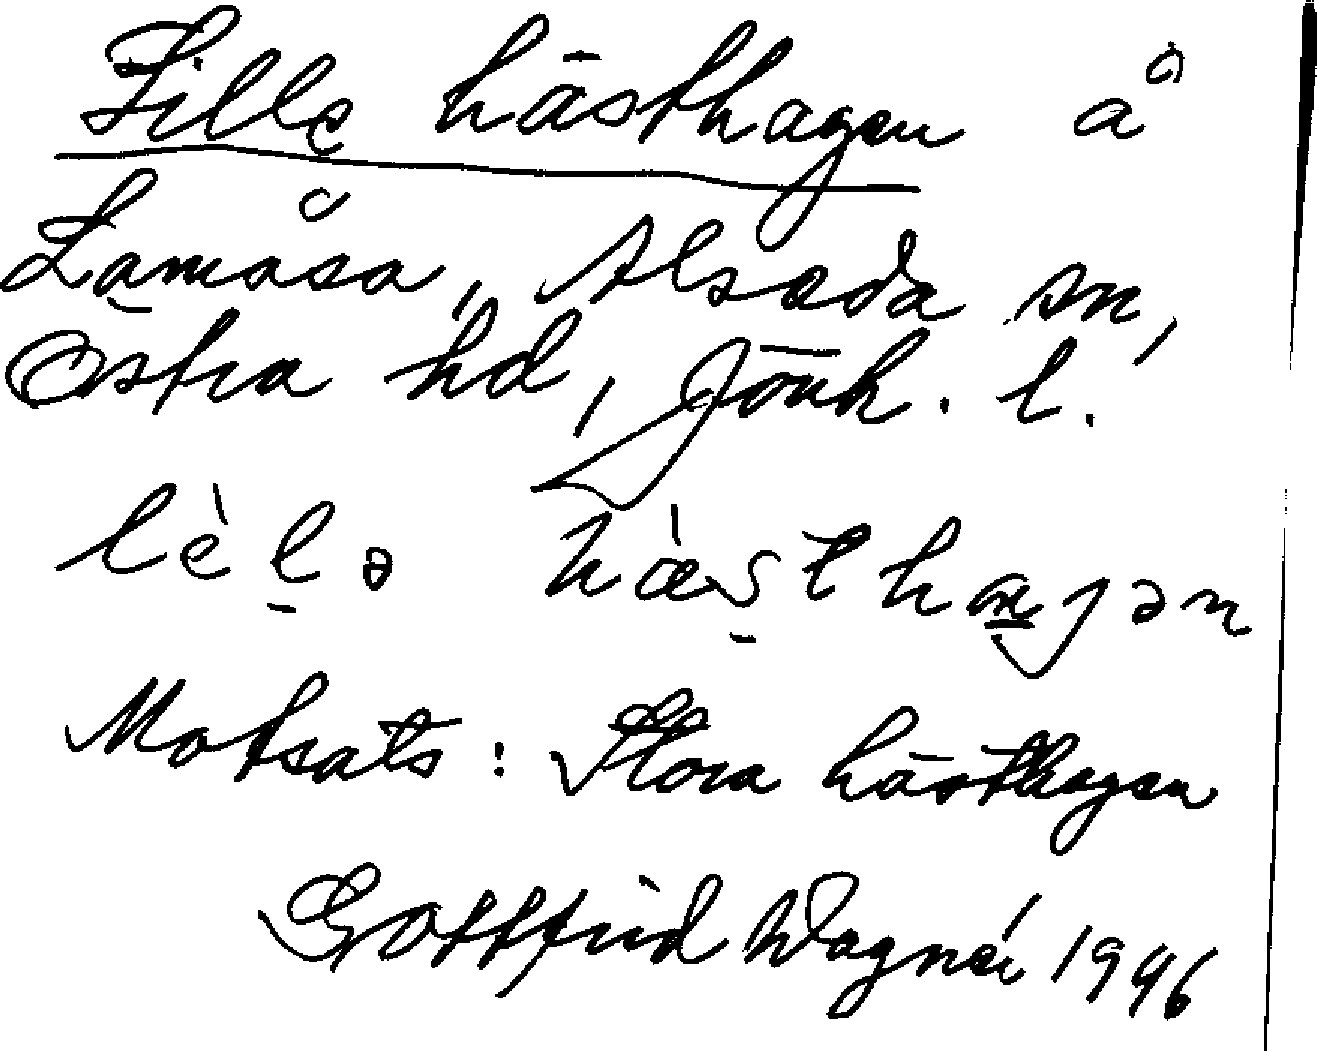 Lille hästhagen å
Lamåsa, Alseda sn,
Östra hd, Jönk. l.
lèlə hæ̀sthaɡən
Motsats: Stora hästhagen
Gottfrid Wagnér 1946